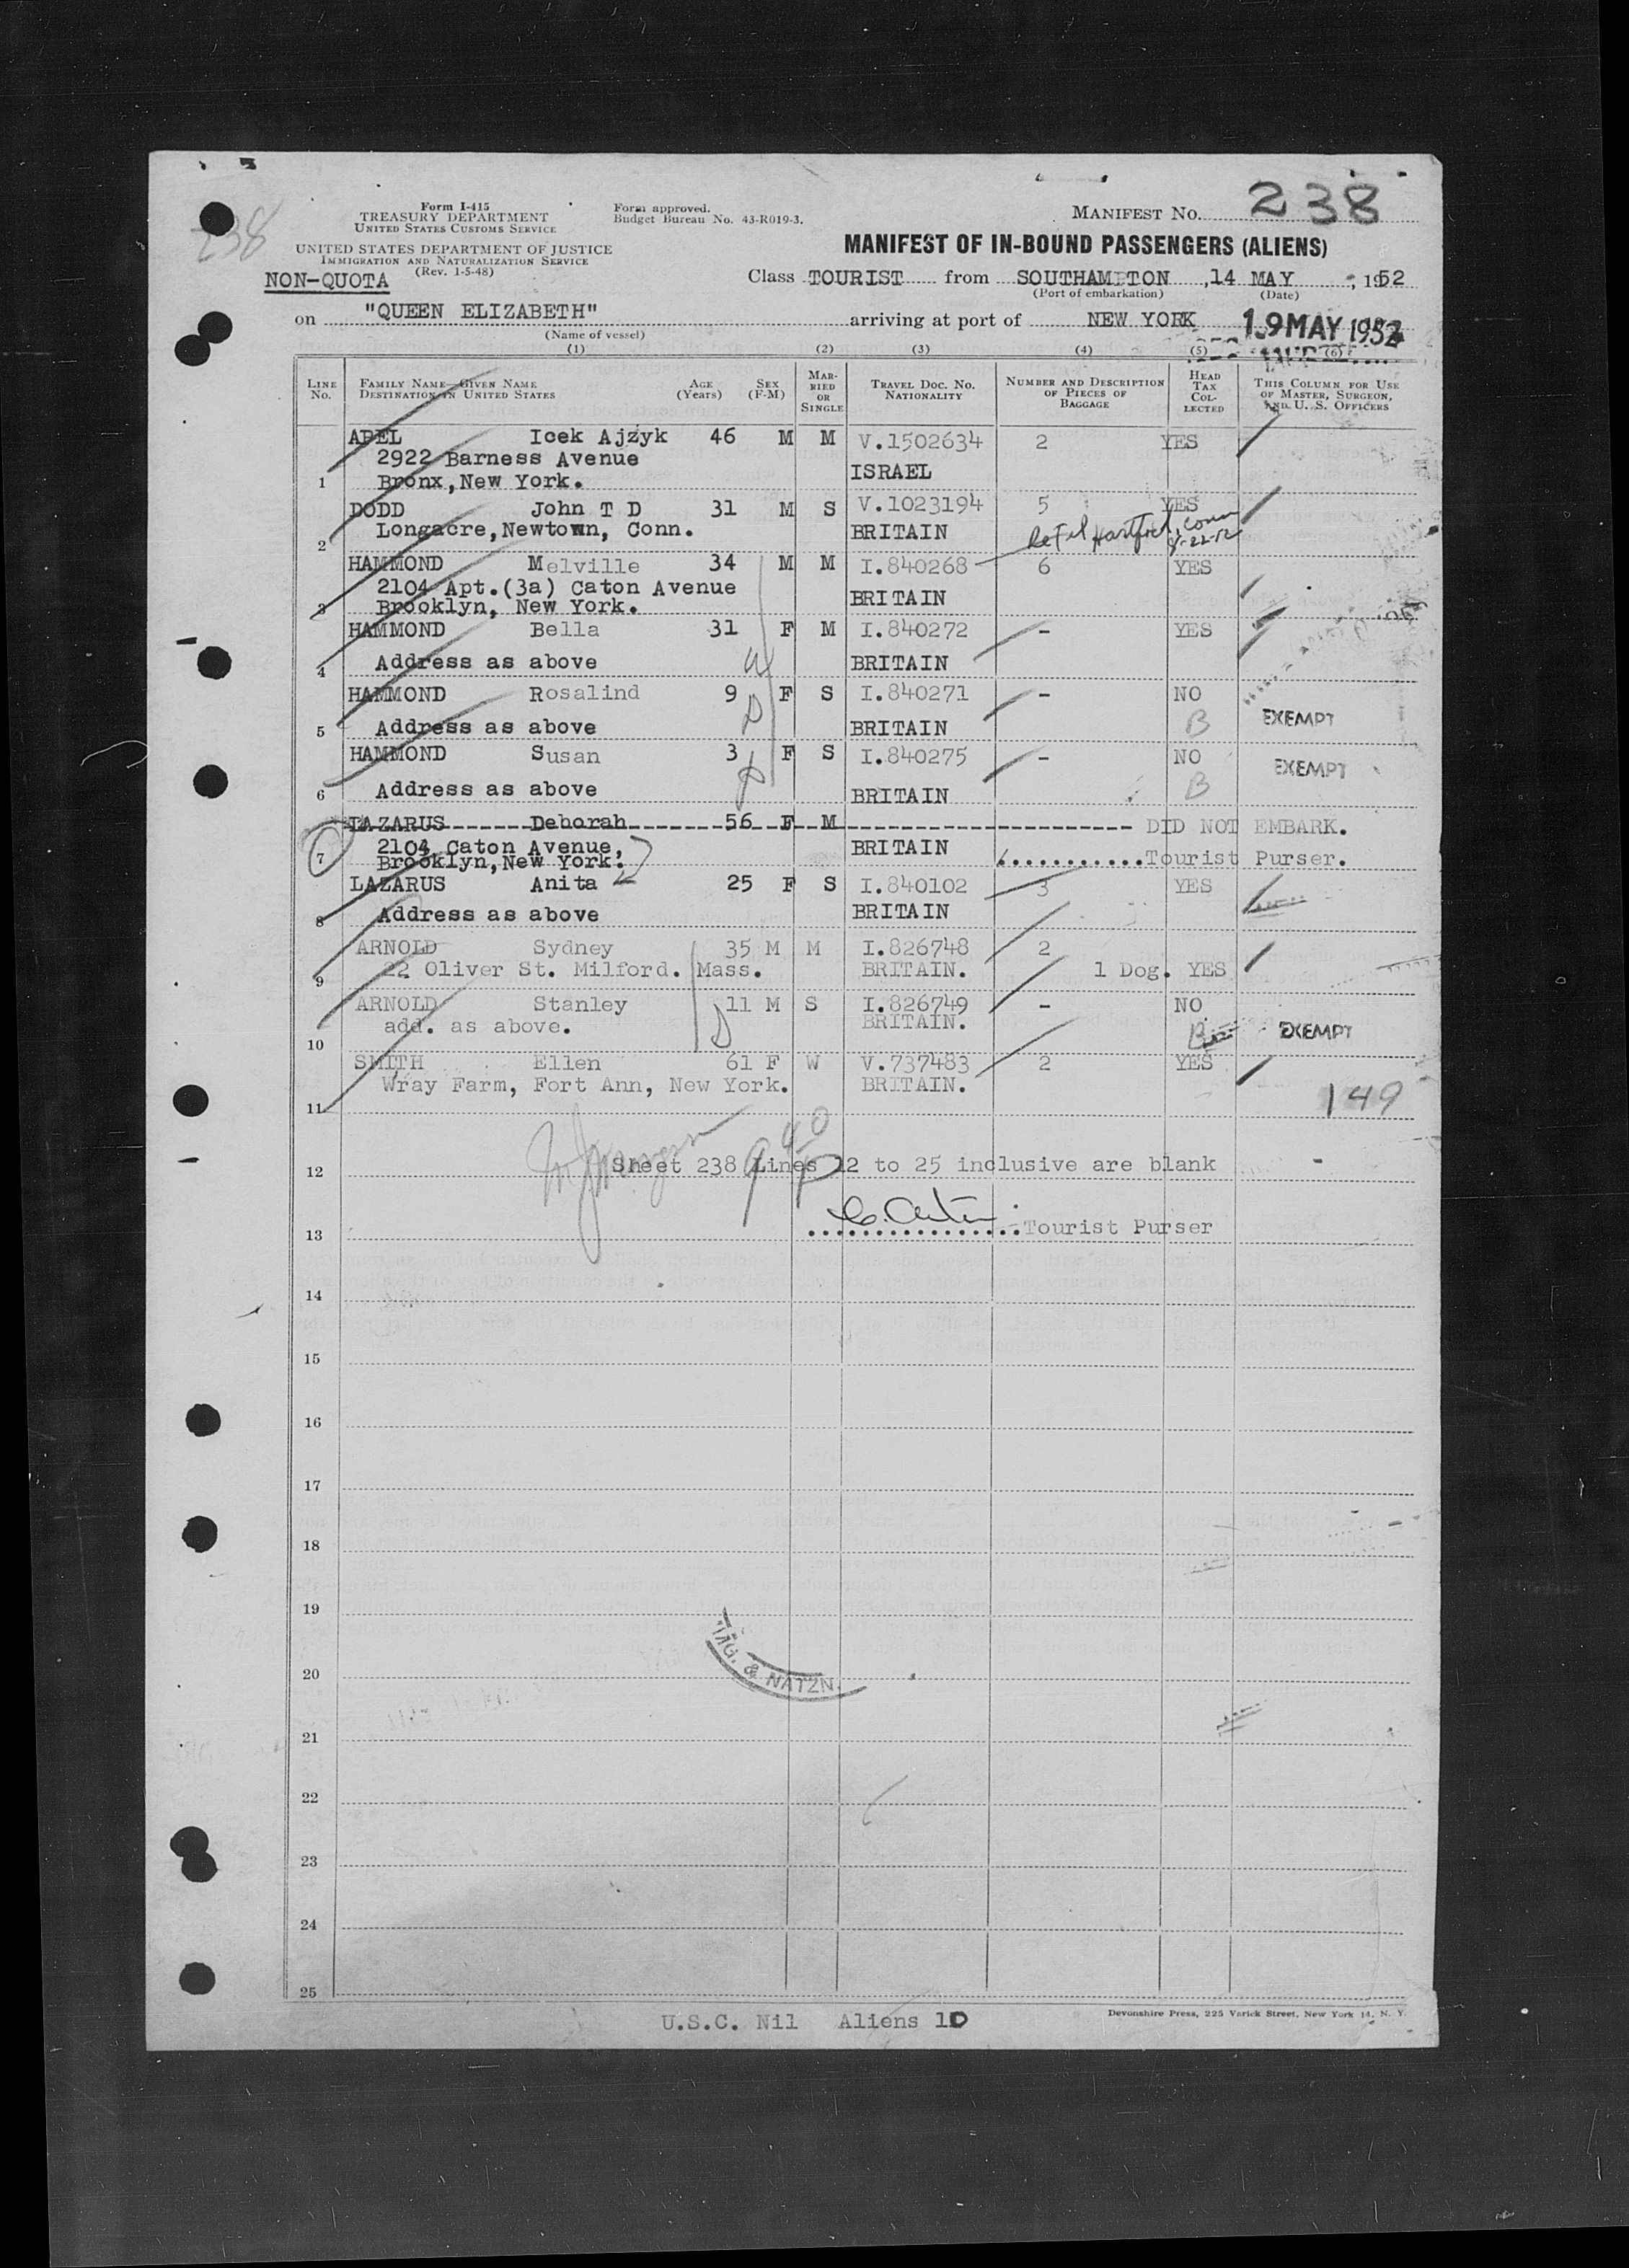 238
Form I-415
TREASURY DEPARTMENT
UNITED STATES CUSTOMS SERVICE
UNITED STATES DEPARTMENT OF JUSTICE
IMMIGRATION AND NATURALIZATION SERVICE
(Rev. 1-5-48)
NON-QUOTA
Form approved.
Budget Bureau No. 43-R019-3.
MANIFEST No. 238
MANIFEST OF IN-BOUND PASSENGERS (ALIENS)
Class TOURIST from SOUTHAMPTON, 14 MAY, 1952
(Port of embarkation) (Date)
on "QUEEN ELIZABETH" arriving at port of NEW YORK 19 MAY 1952
(Name of vessel)
(1) (2) (3) (4) (5) (6)
LINE No. FAMILY NAME—GIVEN NAME DESTINATION IN UNITED STATES AGE (Years) SEX (F-M) MARRIED OR SINGLE TRAVEL DOC. NO. NATIONALITY NUMBER AND DESCRIPTION OF PIECES OF BAGGAGE HEAD TAX COLLECTED THIS COLUMN FOR USE OF MASTER, SURGEON, AND U. S. OFFICERS
ABEL Icek Ajzyk 46 M M V.1502634 2 YES
2922 Barness Avenue ISRAEL
1 Bronx, New York.
DODD John T D 31 M S V.1023194 5 YES
2 Longacre, Newtown, Conn. BRITAIN
Hartford, Conn
HAMMOND Melville 34 M M I.840268 6 YES
2104 Apt.(3a) Caton Avenue BRITAIN
3 Brooklyn, New York.
HAMMOND Bella 31 F M I.840272 - YES
4 Address as above BRITAIN
HAMMOND Rosalind 9 F S I.840271 - NO
5 Address as above BRITAIN B EXEMPT
HAMMOND Susan 3 F S I.840275 - NO EXEMPT
6 Address as above BRITAIN B
LAZARUS Deborah 56 F M DID NOT EMBARK.
7 2104 Caton Avenue, BRITAIN
Brooklyn, New York. ............Tourist Purser.
LAZARUS Anita 25 F S I.840102 3 YES
8 Address as above BRITAIN
ARNOLD Sydney 35 M M I.826748 2
9 22 Oliver St. Milford. Mass. BRITAIN. 1 Dog. YES
ARNOLD Stanley 11 M S I.826749 - NO
10 add. as above. BRITAIN. B EXEMPT
SMITH Ellen 61 F W V.737483 2 YES
11 Wray Farm, Fort Ann, New York. BRITAIN.
149
12 Sheet 238 Lines 12 to 25 inclusive are blank
13 ................Tourist Purser
14
15
16
17
18
19
IMG. & NATZN.
20
21
22
23
24
25
U.S.C. Nil Aliens 10
Devonshire Press, 225 Varick Street, New York 14, N. Y.